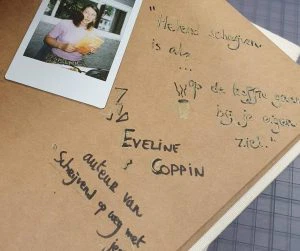 "Helend schrijven
is als
...
op de koffie gaan
bij je eigen
ziel."
Eveline
Coppin
auteur van
Schrijvend op weg met
je